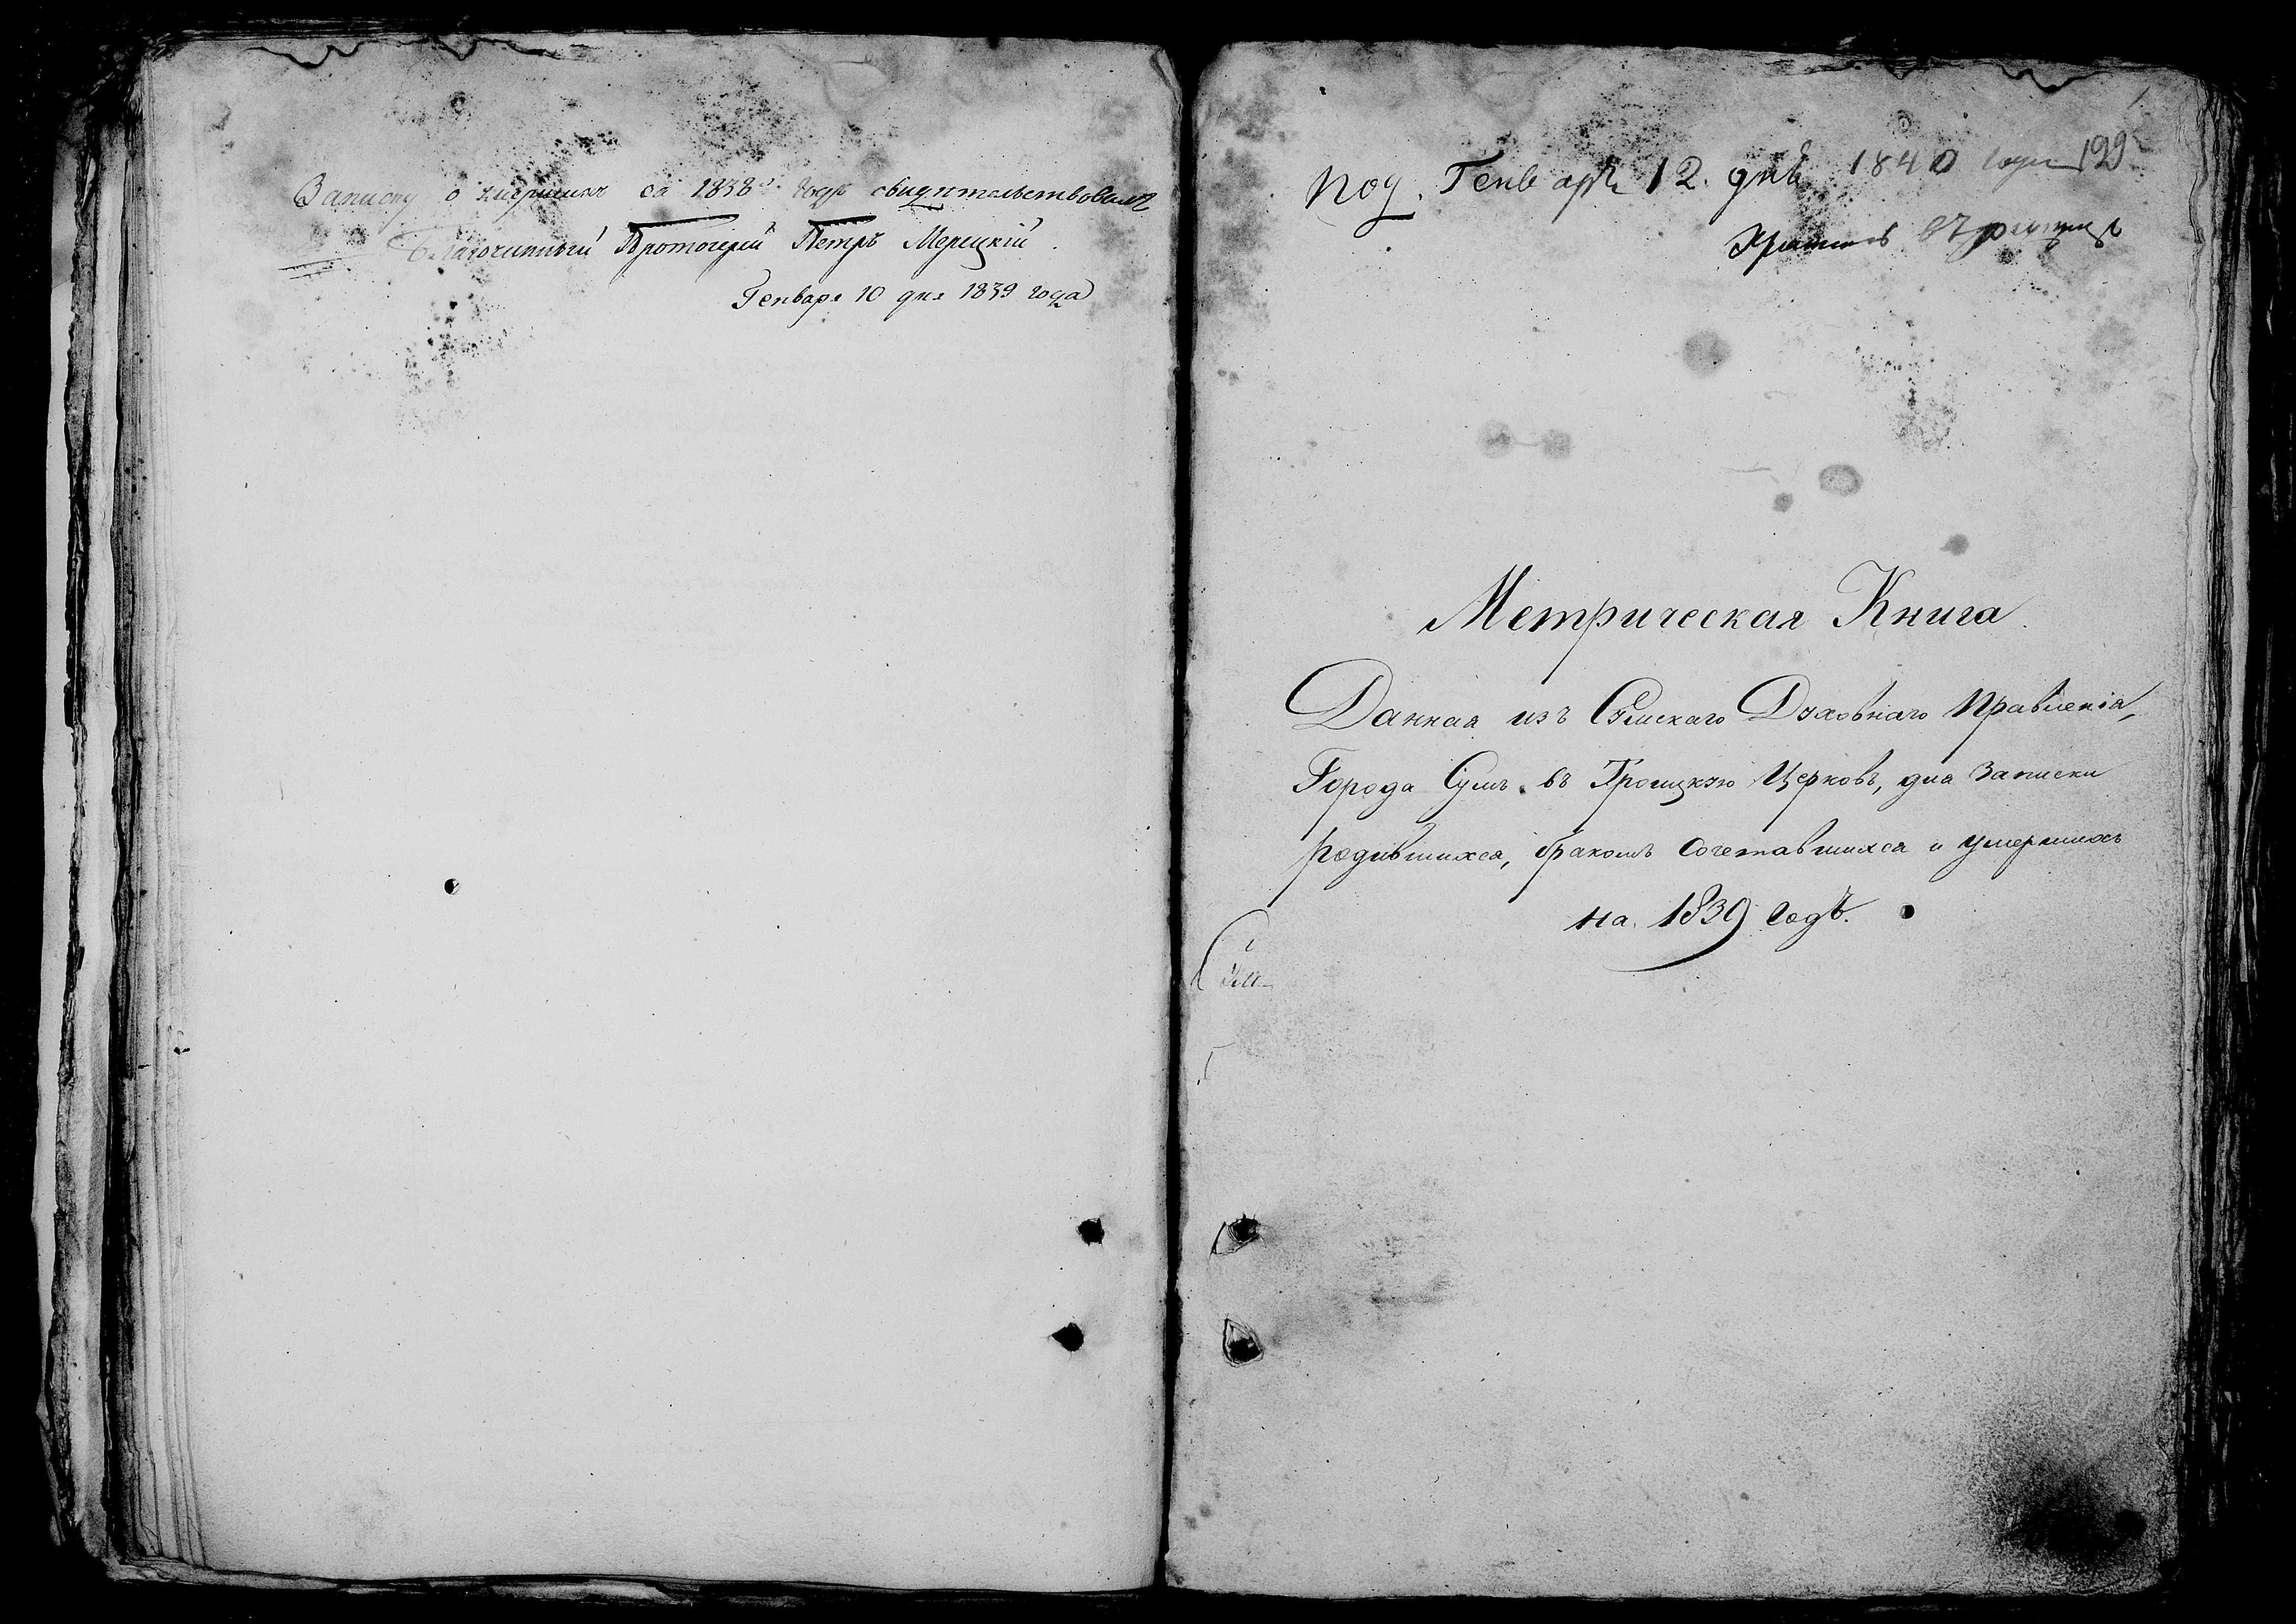 Записку о умершихъ за 1838й годъ свидѣтельствовалъ
Благочинный Протоіерей Петръ Мерецкій.
Генваря 10 дня 1839 года
199
под. Генваря 12. дня 1840 года
Метрическая Книга.
Данная изъ Сумскаго Духовнаго Правленія,
Города Сумъ въ Троицкую Церковь, для записки
родившихся, бракомъ сочетавшихся и умершихъ
на 1839 годъ.